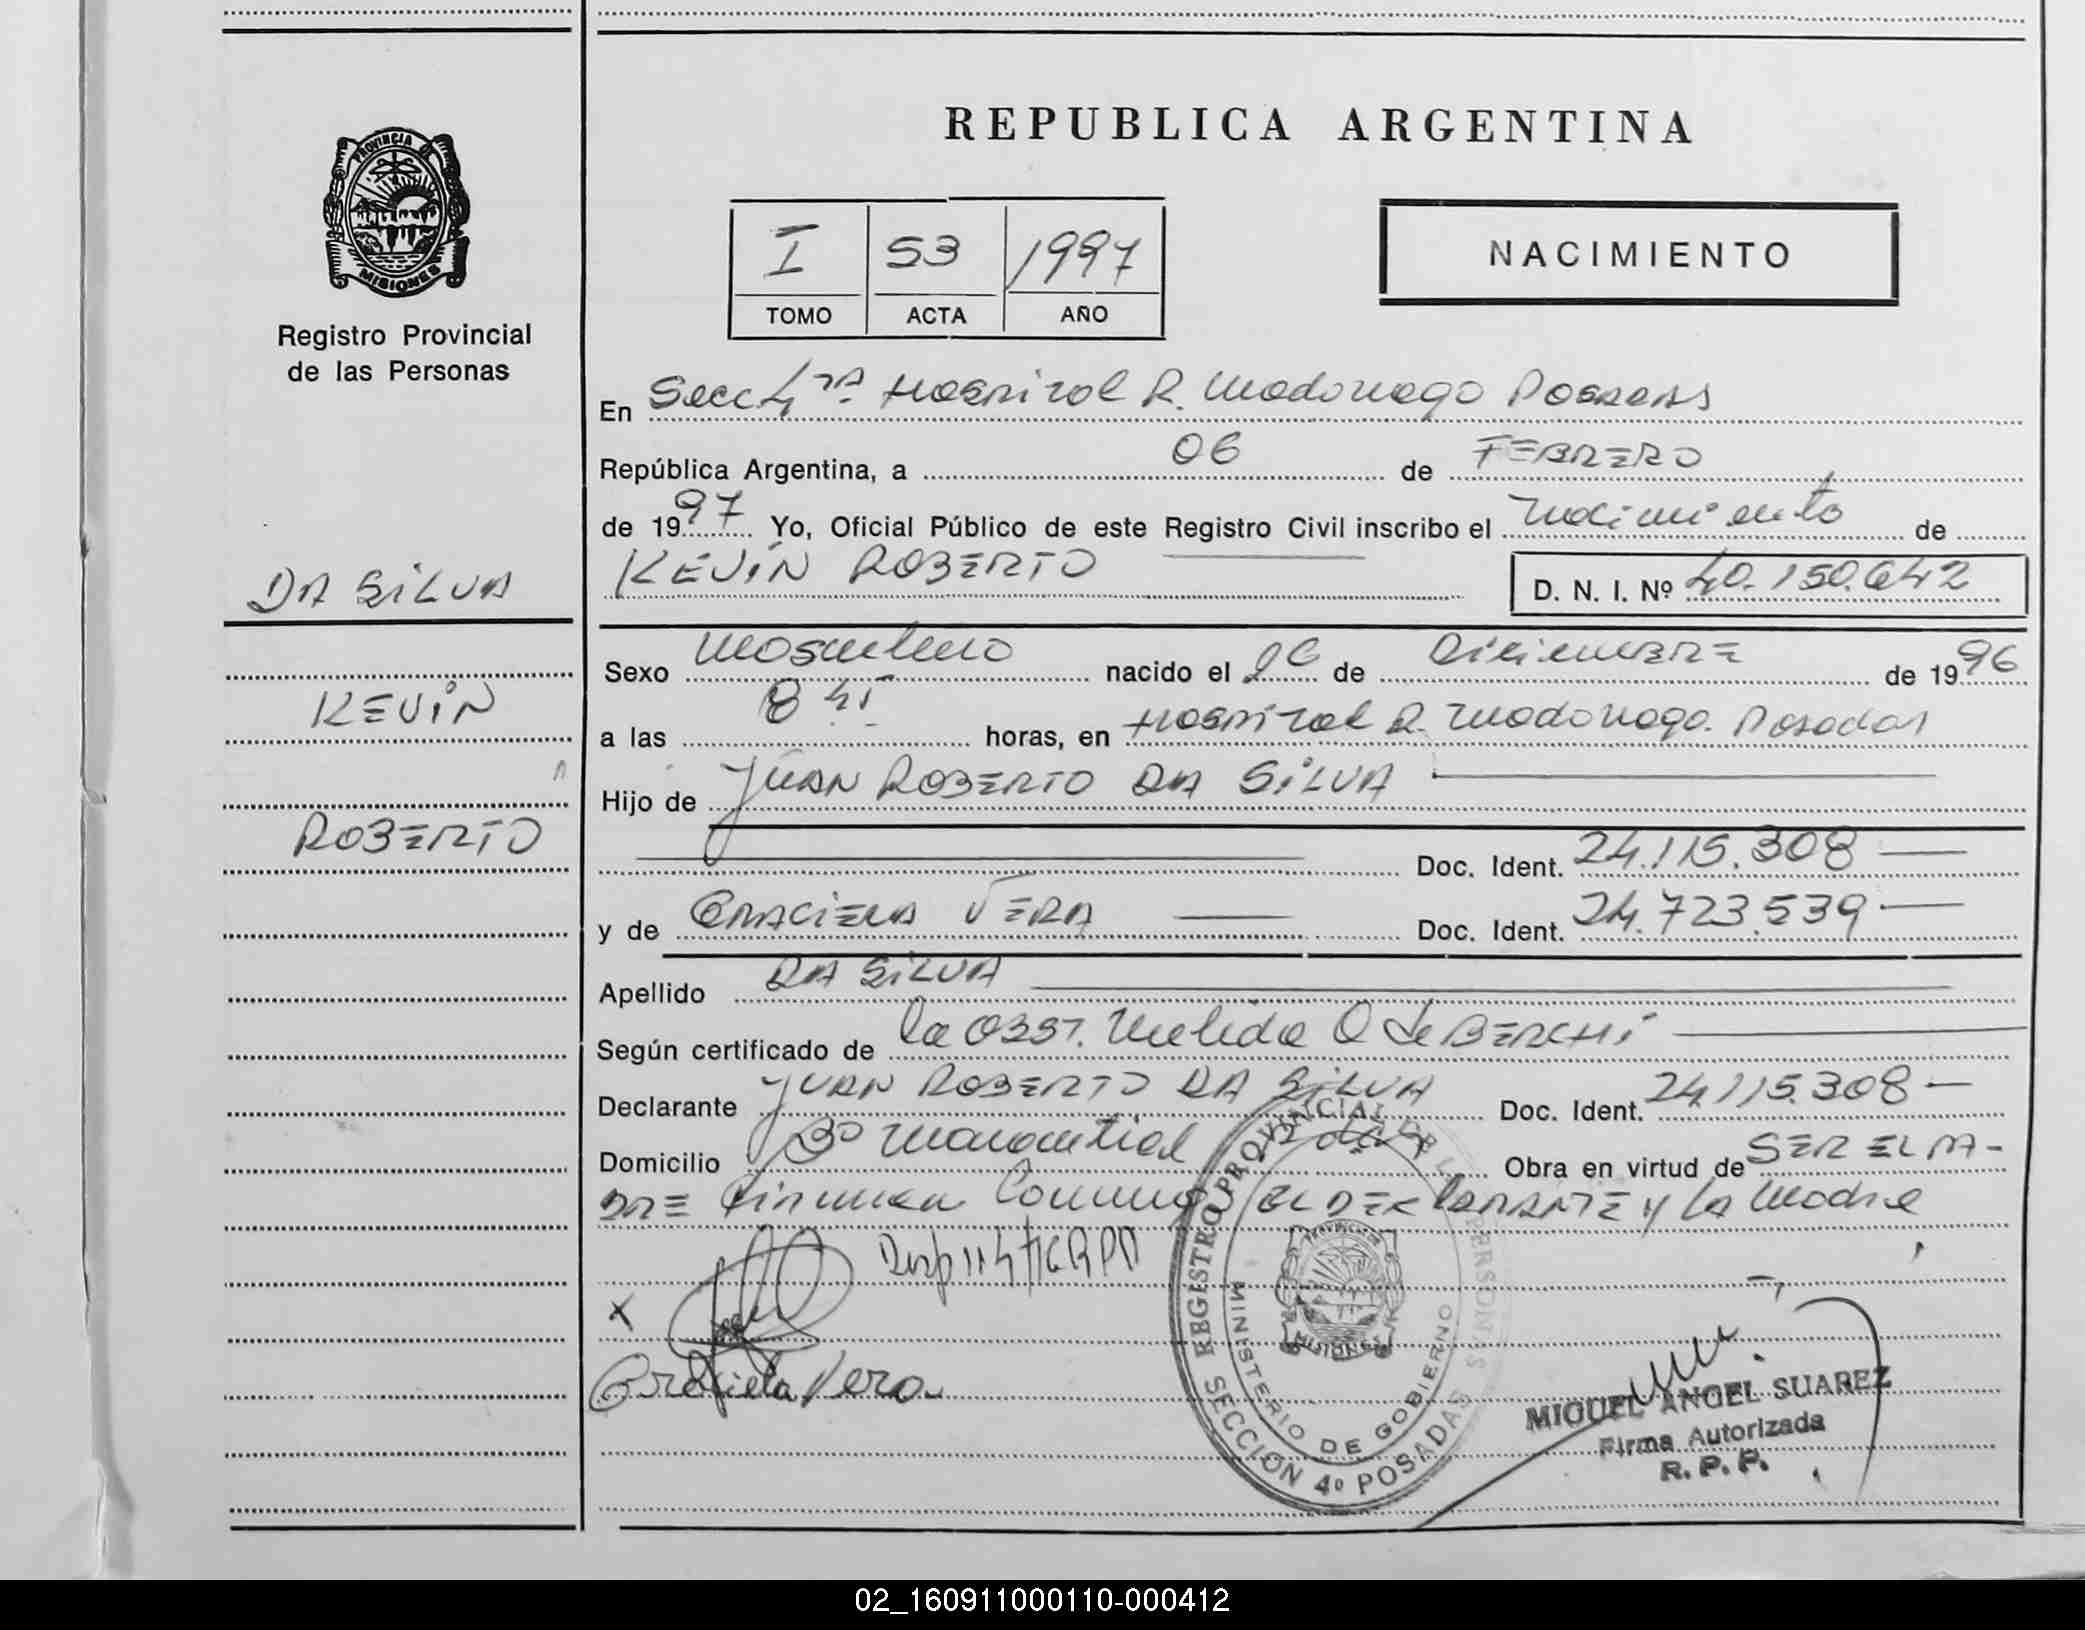 REPUBLICA ARGENTINA
PROVINCIA
MISIONES
Registro Provincial
de las Personas
I 53 1997
TOMO ACTA AÑO
NACIMIENTO
En Secc 4ta Hospital R. Madariaga Posadas
República Argentina, a 06 de FEBRERO
de 1997 Yo, Oficial Público de este Registro Civil inscribo el nacimiento de
DA SILVA
KEVIN ROBERTO
D. N. I. Nº 40.150.642
Sexo masculino nacido el 26 de Diciembre de 1996
KEVIN
a las 8 45 horas, en Hospital R. Madariaga. Posadas
Hijo de JUAN ROBERTO DA SILVA
ROBERTO
Doc. Ident. 24.115.308
y de GRACIELA VERA Doc. Ident. 24.723.539
Apellido DA SILVA
Según certificado de la OBST. Nelida Q de BERCHI
Declarante JUAN ROBERTO DA SILVA Doc. Ident. 24.115.308
Domicilio Bº Manantial Pdas Obra en virtud de SER EL PA-
DRE Firman Conmigo EL DECLARANTE y La Madre
Disp 114/16 RPP
X
Graciela Vera
REGISTRO PROVINCIAL DE LAS PERSONAS
MINISTERIO DE GOBIERNO
SECCION 4º POSADAS
PROVINCIA
MISIONES
MIGUEL ANGEL SUAREZ
Firma Autorizada
R. P. P.
02_160911000110-000412